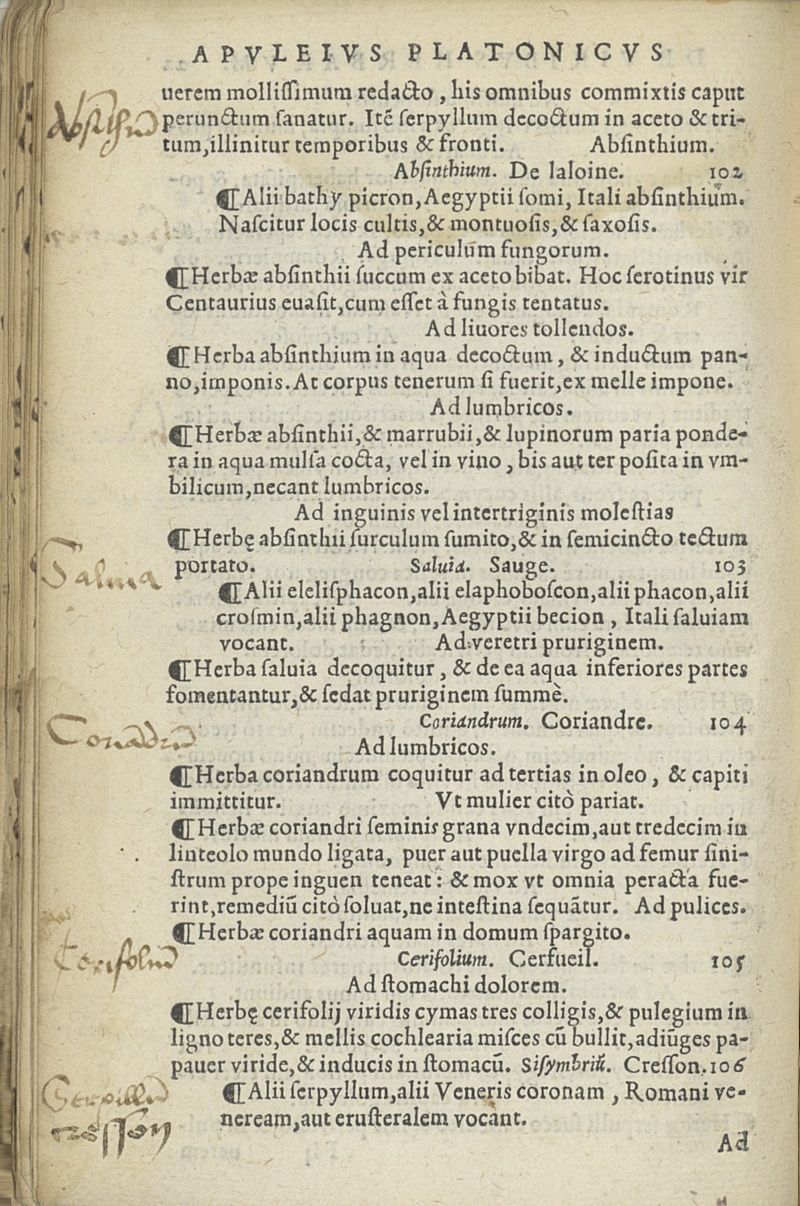 APVLEIVS PLATONICVS
uerem mollissimum redacto, his omnibus commixtis caput
Absinthiũ
perunctum sanatur. Itē serpyllum decoctum in aceto & tri-
tum, illinitur temporibus & fronti. Absinthium.
Absinthium. De laloine. 102
¶ Alii bathy picron, Aegyptii somi, Itali absinthium.
Nascitur locis cultis, & montuosis, & saxosis.
Ad periculum fungorum.
¶ Herbæ absinthii succum ex aceto bibat. Hoc serotinus vir
Centaurius euasit, cum esset à fungis tentatus.
Ad liuores tollendos.
¶ Herba absinthium in aqua decoctum, & inductum pan-
no, imponis. At corpus tenerum si fuerit, ex melle impone.
Ad lumbricos.
¶ Herbæ absinthii, & marrubii, & lupinorum paria ponde-
ra in aqua mulsa cocta, vel in vino, bis aut ter posita in vm-
bilicum, necant lumbricos.
Ad inguinis vel intertriginis molestias
¶ Herbę absinthii surculum sumito, & in semicincto tectum
Saluia
portato. Saluia. Sauge. 103
¶ Alii elelisphacon, alii elaphoboscon, alii phacon, alii
crosmin, alii phagnon, Aegyptii becion, Itali saluiam
vocant. Ad veretri pruriginem.
¶ Herba saluia decoquitur, & de ea aqua inferiores partes
fomentantur, & sedat pruriginem summè.
Coriandrum. Coriandre. 104
Ad lumbricos.
¶ Herba coriandrum coquitur ad tertias in oleo, & capiti
immittitur. Vt mulier citò pariat.
¶ Herbæ coriandri seminis grana vndecim, aut tredecim in
linteolo mundo ligata, puer aut puella virgo ad femur sini-
strum prope inguen teneat: & mox vt omnia peracta fue-
rint, remediū citò soluat, ne intestina sequātur. Ad pulices.
¶ Herbæ coriandri aquam in domum spargito.
Cerifoliũ
Cerifolium. Cerfueil. 105
Ad stomachi dolorem.
¶ Herbę cerifolij viridis cymas tres colligis, & pulegium in
ligno teres, & mellis cochlearia misces cū bullit, adiūges pa-
pauer viride, & inducis in stomacū. Sisymbriū. Cresson. 106
Serpillũ
¶ Alii serpyllum, alii Veneris coronam, Romani ve-
cresson
neream, aut erusteralem vocant.
Ad